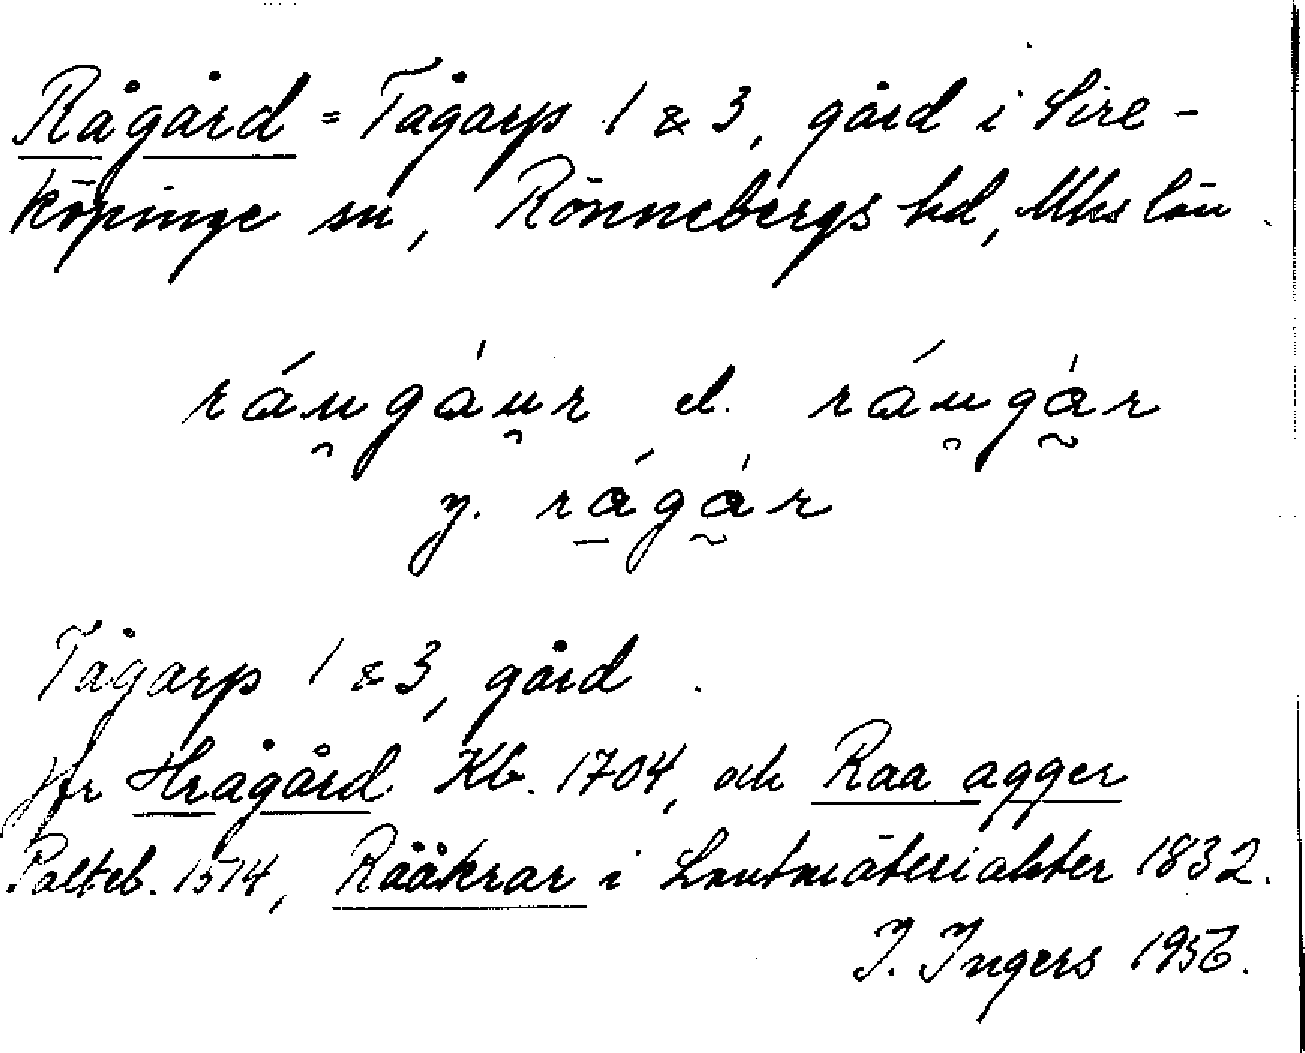 Rågård = Tågarp 1 & 3, gård i Sire-
köpinge sn, Rönnebergs hd, Mhs län.
ráu̯gáu̯r el. ráu̯gá̰r
y. rá̱gá̰r
Tågarp 1 & 3, gård.
jfr Hrågård Kb. 1704, och Raa agger
Palteb. 1514, Rååkrar i Lantmäteriakter 1832.
I. Ingers 1956.